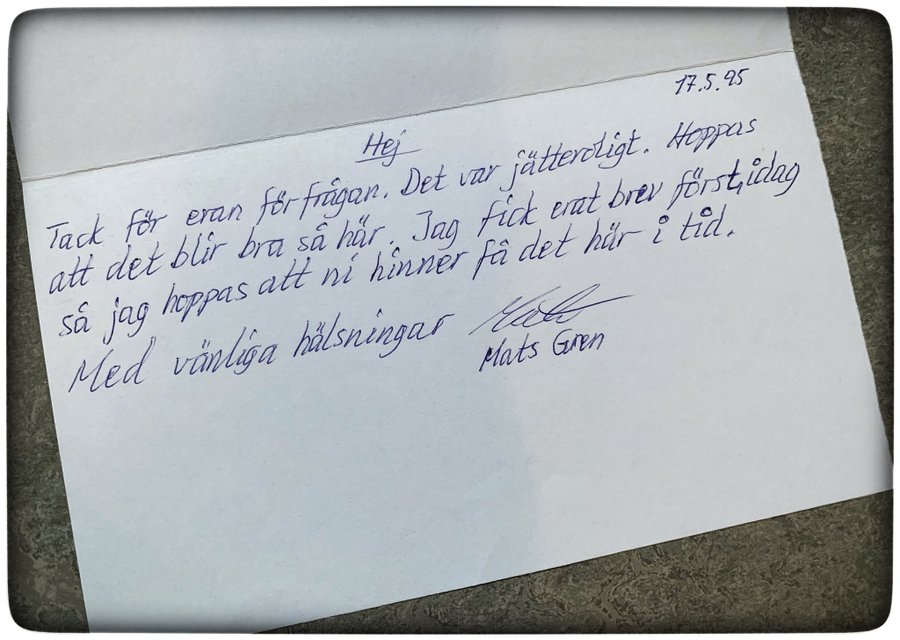 17.5.95
Hej
Tack för eran förfrågan. Det var jätteroligt. Hoppas
att det blir bra så här. Jag fick erat brev först idag
så jag hoppas att ni hinner få det här i tid.
Med vänliga hälsningar
Mats Gren